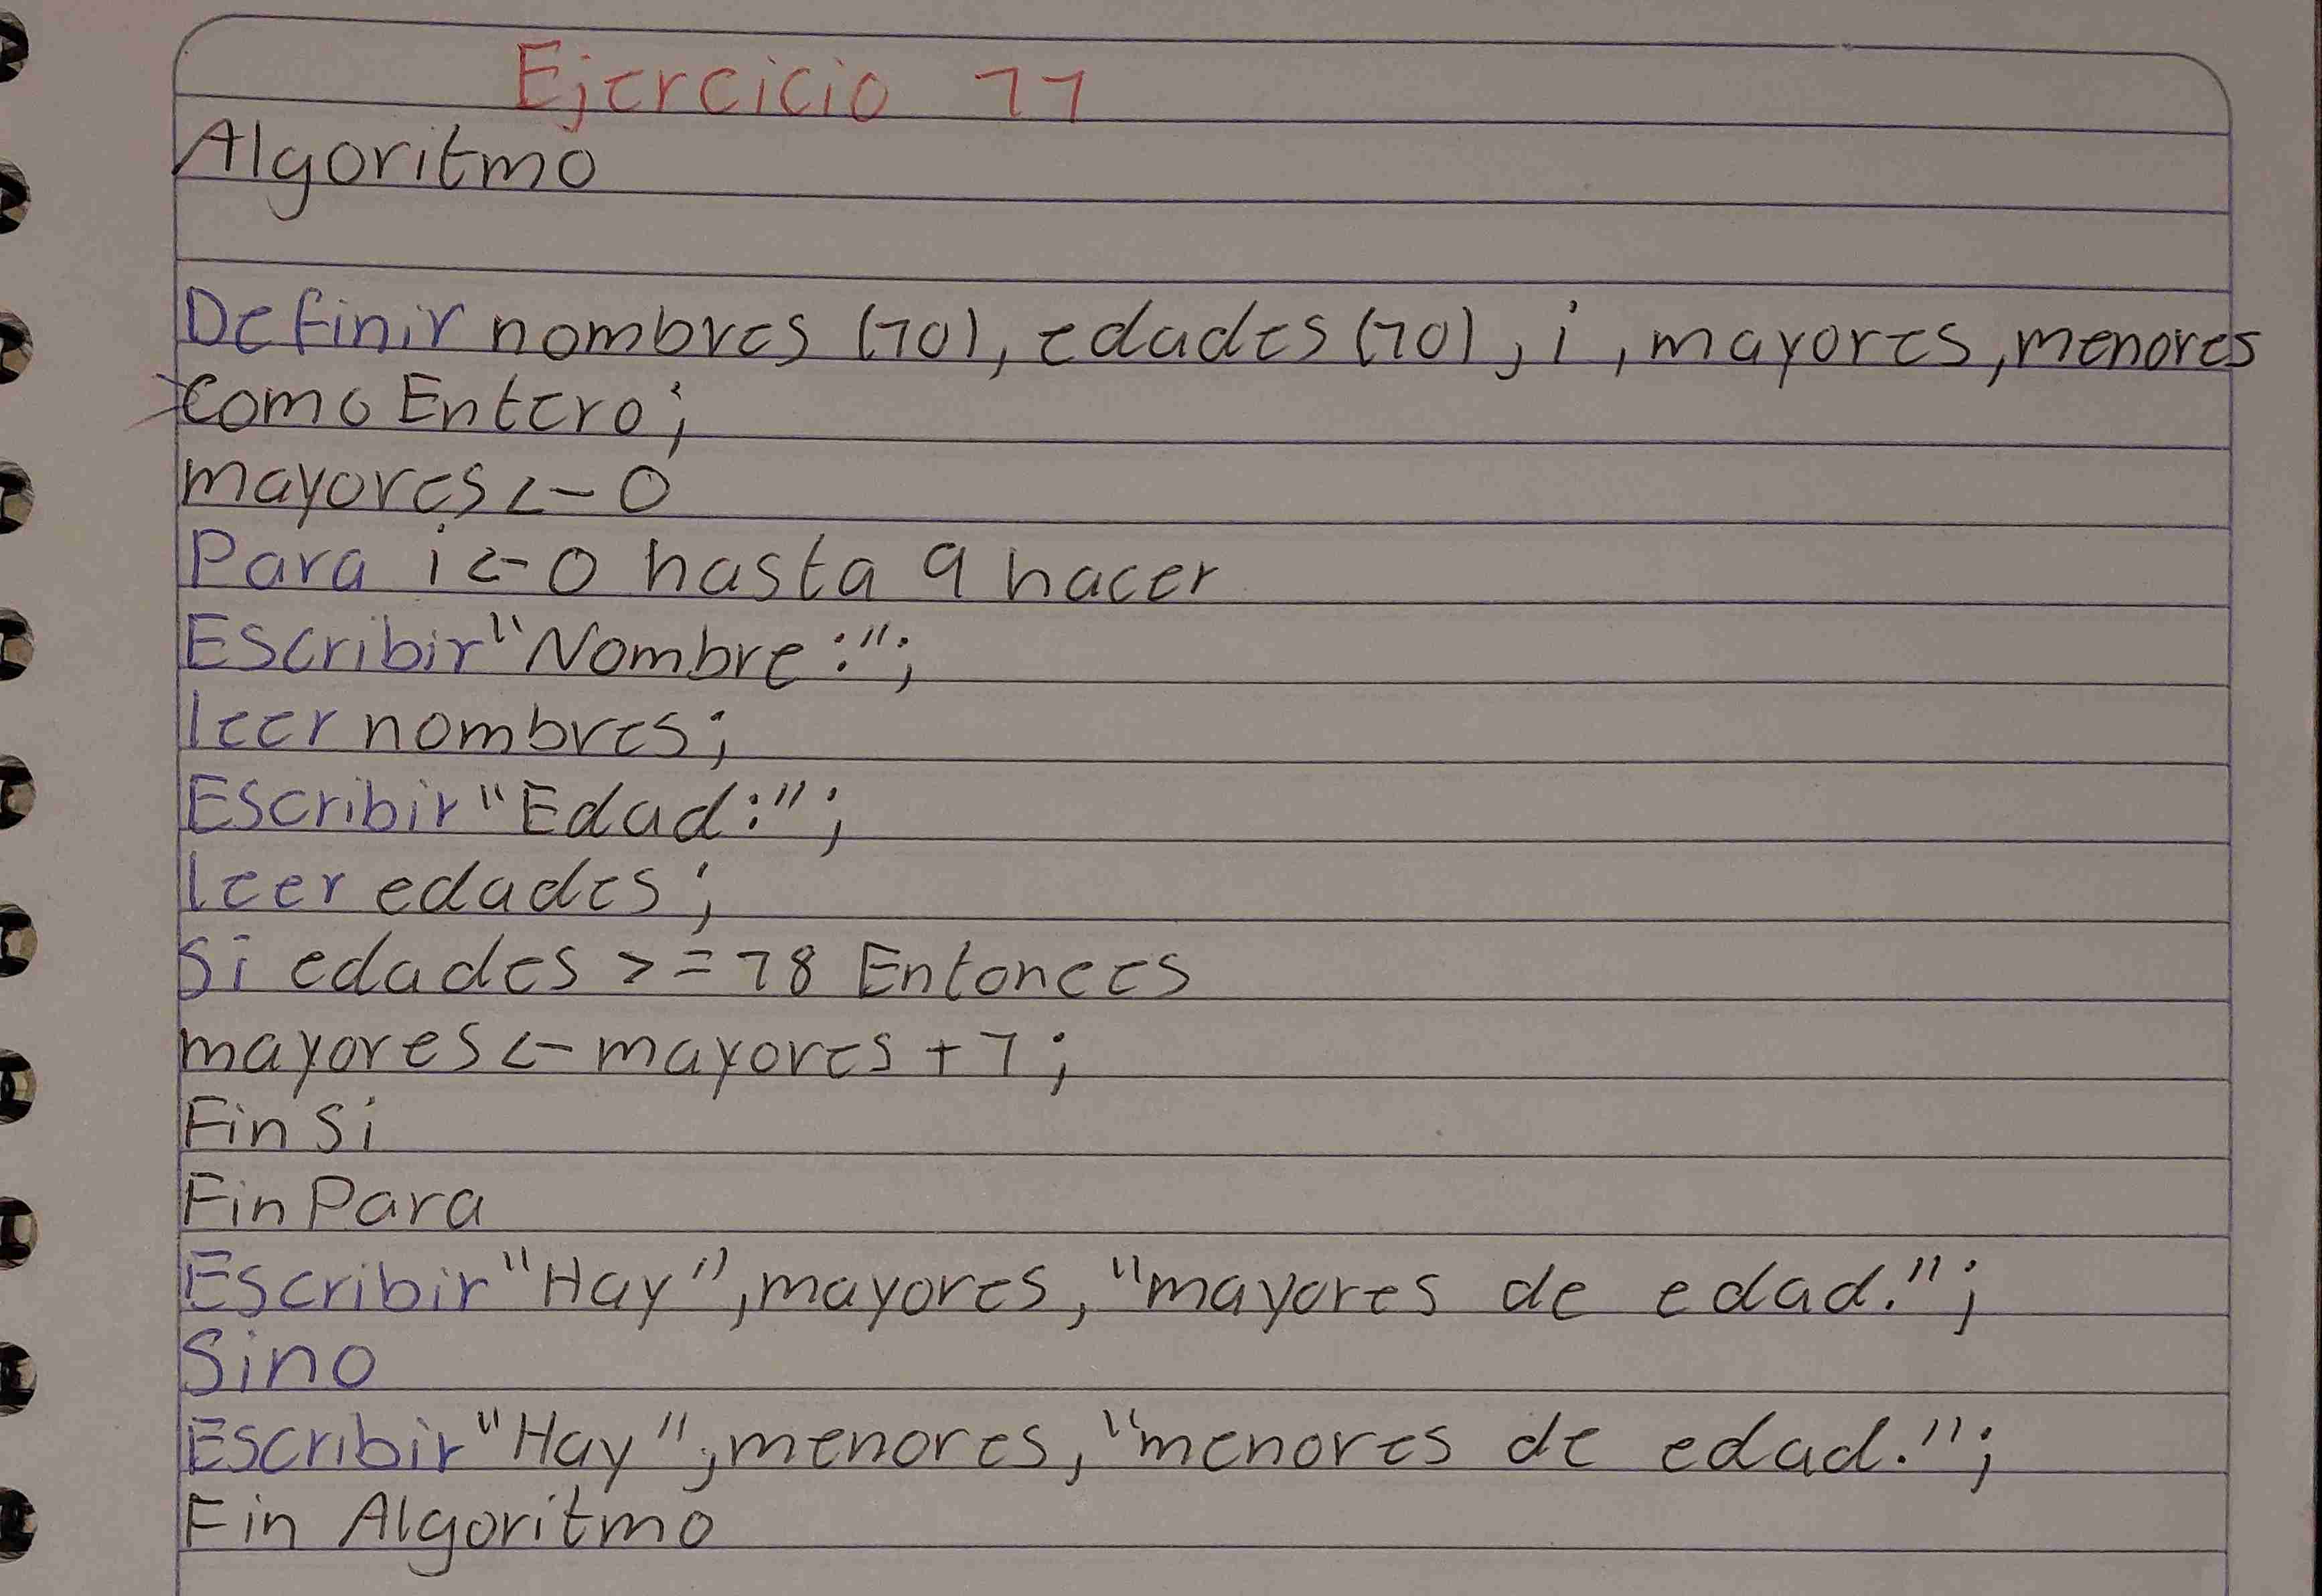 Ejercicio 11
Algoritmo
Definir nombres (10), edades (10), i, mayores, menores
Como Entero;
mayores <- 0
Para i <- 0 hasta 9 hacer
Escribir "Nombre:";
leer nombres;
Escribir "Edad:";
leer edades;
Si edades >= 18 Entonces
mayores <- mayores + 1;
Fin Si
Fin Para
Escribir "Hay", mayores, "mayores de edad.";
Sino
Escribir "Hay", menores, "menores de edad.";
Fin Algoritmo